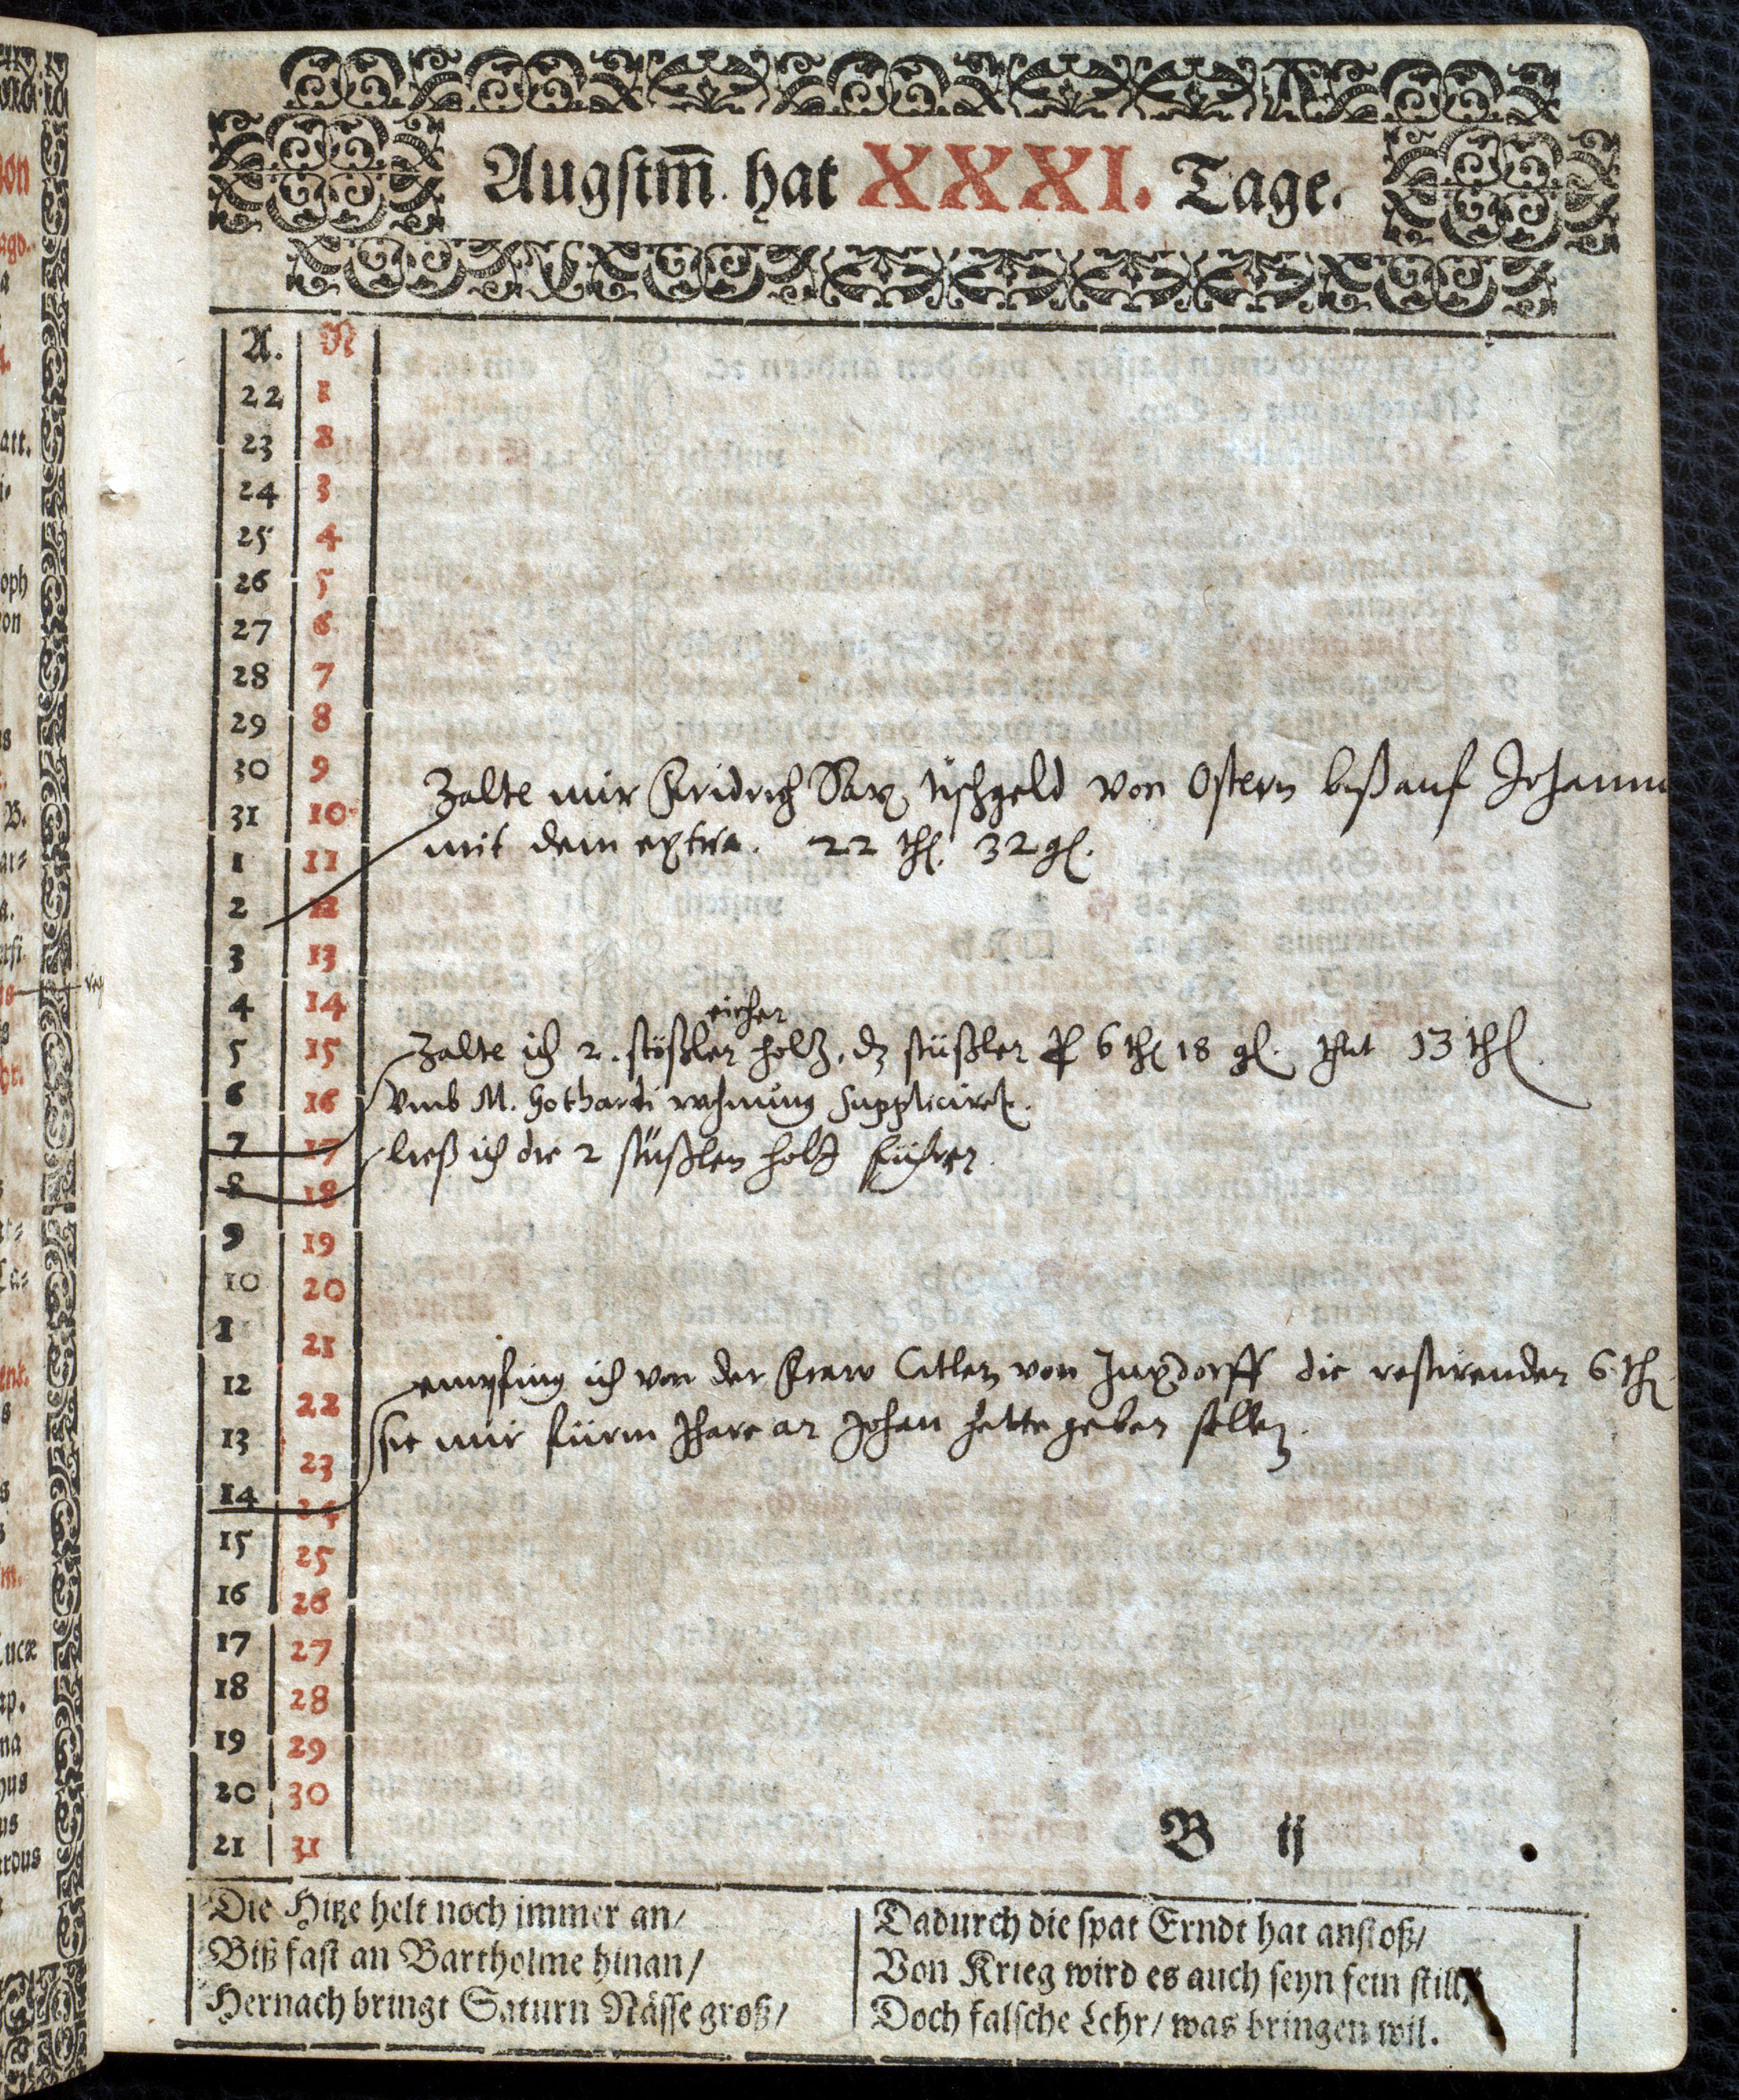 Augstm̄ hat XXXI. Tage.
A. N
22 1
23 2
24 3
25 4
26 5
27 6
28 7
29 8
30 9
Zalte mir Fridrich Sax tischgeld von Ostern biß auf Johanni
31 10
mit dem extra. 22 thl. 32 gl.
1 11
2 12
3 13
4 14
eicher
5 15 Zalte ich 2. stößler holtz, dz stüßler p 6 thl 18 gl. thut 13 thl.
6 16 Vmb M. Gothardi wohnung Supplicirt.
7 17 ließ ich die 2 stüßlen holtz führen.
8 18
9 19
10 20
11 21
empfing ich von der Fraw von die restirenden 6 thl
12 22
sie mir fürm Jhare an Johan hette geben sollen.
13 23
14 24
15 25
16 26
17 27
18 28
19 29
20 30
21 31
B ij
Die Hitze helt noch jmmer an/
Biß fast an Bartholme hinan/
Hernach bringt Saturn Nässe groß/
Dadurch die spat Erndt hat anstoß/
Von Krieg wird es auch seyn fein still/
Doch falsche Lehr/ was bringen wil.